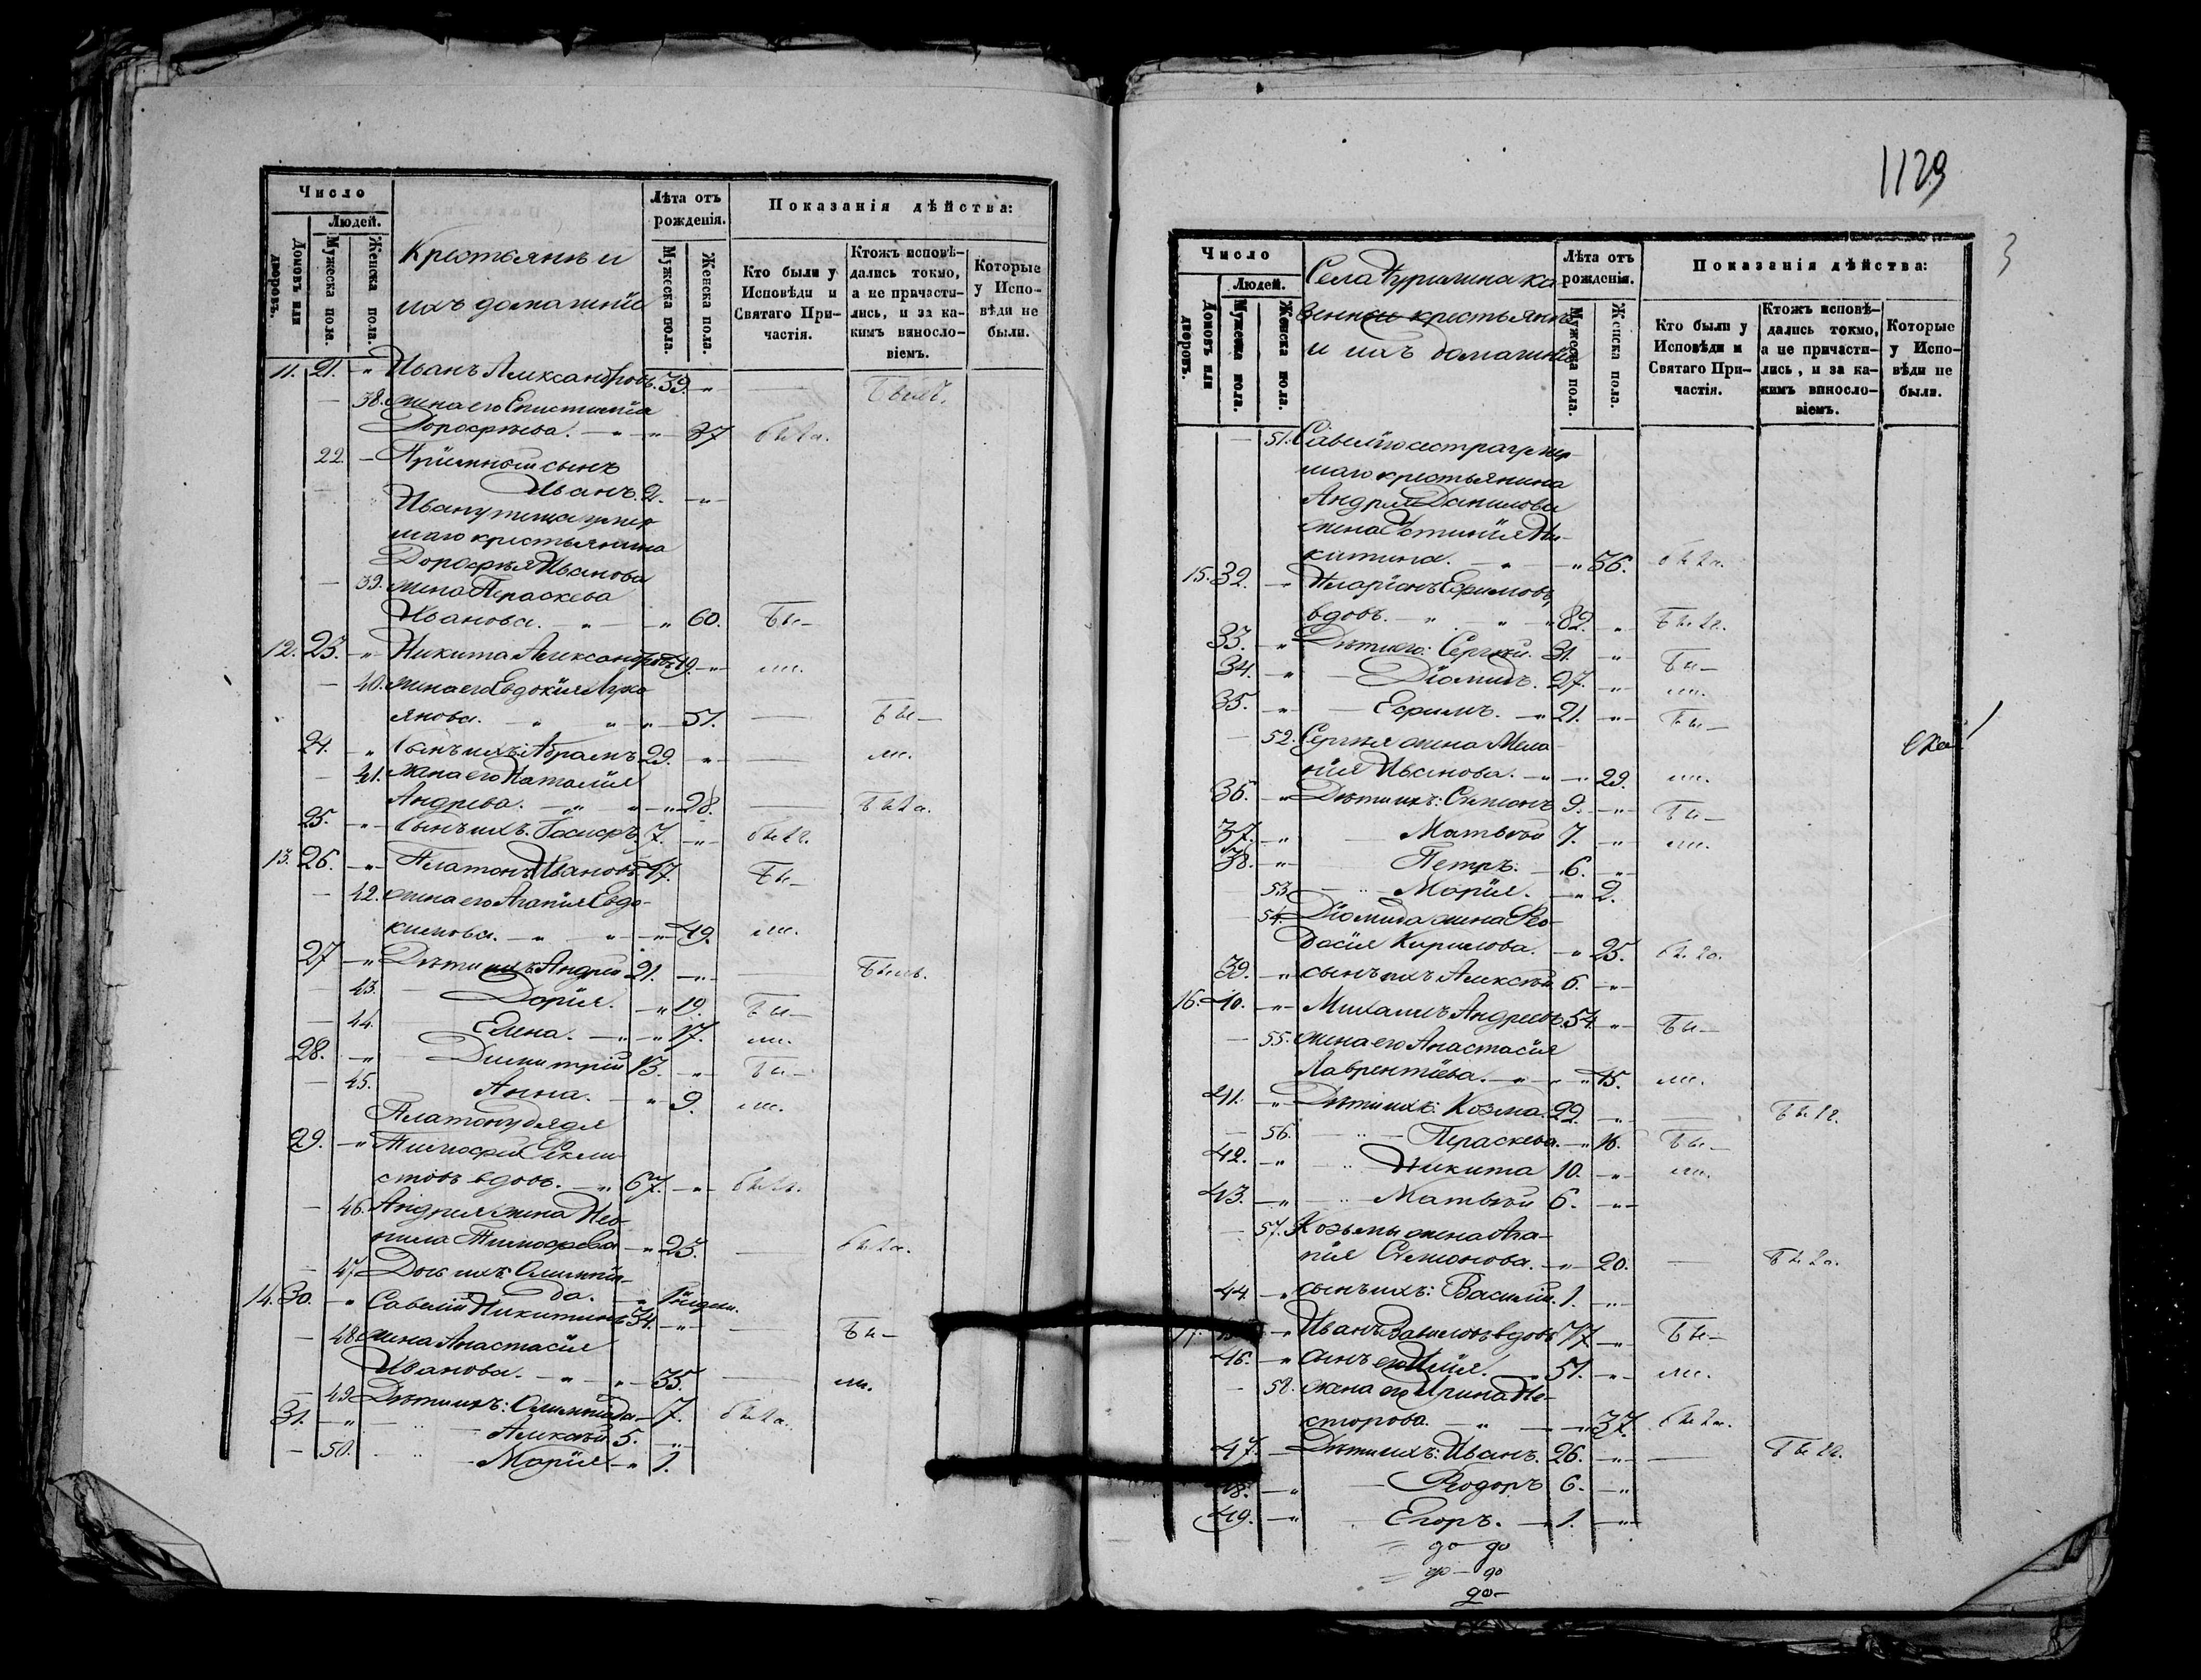 Число
Людей.
Домовъ или дворовъ.
Мужеска пола.
Женска пола.
Крестьяне и
ихъ домашніе
Лѣта отъ рожденія.
Мужеска пола.
Женска пола.
Показанія дѣйства:
Кто были у Исповѣди и Святаго Причастія.
Ктожъ исповѣдались токмо, а не причастились, и за какимъ винословіемъ.
Которые у Исповѣди не были.
11. 21. - " Иванъ Александровъ. 39. - " - Былъ.
- 38. жена его Епистимія
Дорофѣева. - " - " 37 была.
22. - Пріемной сынъ
Иванъ. 2. - " -
Ивану теща умер
шаго крестьянина
Дорофѣя Иванова
- 39. жена Параскева
Иванова. - " - " 60. Бы-
12. 23. - " Никита Александровъ 49. - " - ли.
- 40. жена его Евдокія Лукь
янова. - " - " 51. - Бы-
24. - " Сынъ ихъ Абрамъ 29. - " - ли.
- 41. жена его Наталія
Андрева. - " - " 28. - Была.
25. - " Сынъ ихъ 7. - " - былъ.
13. 26. - " Платонъ Ивановъ. 47. Бы-
- 42. жена его Агапія Евдо-
кимова. - " - " 49. ли.
27 - " Дѣти ихъ Андрей 21. - " - Былъ.
- 43. Дарія. - " 19. Бы-
- 44. Елена. - " 17. ли.
28. - " Димитрій 13. - " Бы-
- 45. Анна. - " 9. ли.
Платону дядя
29. - " Тимофей
вдовъ. - " 67. - " былъ.
- 46. Андрея жена Нео-
нила Тимофеева - " 23. - была.
- 47. Дочь ихъ Олимпія-
да. - "
14. 30. - " Савелій Никитинъ 34. - " - Бы-
- 48. жена Анастасія
Иванова. - " - " 35. - ли.
- 49. Дѣти ихъ: Олимпіада - 7. была.
31. - " Алексѣй 5. "
- 50. - Марія - " 1.
1129
3
Число
Людей.
Домовъ или дворовъ.
Мужеска пола.
Женска пола.
Села Турилина ка
зенные крестьяне
и ихъ домашніе
Лѣта отъ рожденія.
Мужеска пола.
Женска пола.
Показанія дѣйства:
Кто были у Исповѣди и Святаго Причастія.
Ктожъ исповѣдались токмо, а не причастились, и за какимъ винословіемъ.
Которые у Исповѣди не были.
- 51. Савелію сестра умер
шаго крестьянина
Андрея Данилова
жена Устинія Ни-
китина. - " - " 56. была.
15. 32. - " Иларіонъ Ефимовъ,
вдовъ. - " - " 82. " Былъ.
33. - " Дѣти его: Сергѣй. 31. - " Бы-
34. " - Діомидъ. 27. - " ли.
35. - " - Ефимъ. - " 21. - " Бы-
- 52. Сергѣя жена Мела-
нія Иванова. - " - " 29. ли.
36. - " Дѣти ихъ: Симеонъ 9. - " Бы-
37. - " Матвѣй 7. " ли.
38. - " Петръ. - 6. - "
53. - " - Марія. - " 2.
- 54. Діомида жена Ѳео-
досія Кирилова. - " 25. была.
39. - " сынъ ихъ Алексѣй 6. - "
16. 40. - " Михаилъ Андреевъ. 54. - " Бы-
- 55. жена его Анастасія
Лаврентіева. - " - " 45. ли.
41. - " Дѣти ихъ: Козма. 22. " - Былъ.
- 56. - " - Параскева. - " 16. Бы-
42. - " - Никита 10. - " ли.
43. - " - " - Матвѣй 6. - "
- 57. Козьмы жена Ага-
пія Симеонова. - " 20. - Была.
44. - " сынъ ихъ: Василій. 1. - "
- " Иванъ вдовъ 77 - " Бы-
46. - " сынъ его Илія. " 51. - " ли.
- 58. жена его Ирина Не-
сторова. - " - " 37. была.
47. - Дѣти ихъ: Иванъ. 26. - " - Былъ.
48. - " - Ѳеодоръ 6. - "
49. - " Егоръ. - " 1. - "